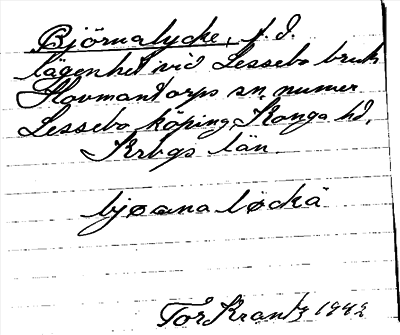 Björnalycke, f. d.
lägenhet vid Lessebo bruk
Hovmantorps sn, numer
Lessebo köping, Konga hd,
Krbgs län
bjøana løckä
Tor Krantz 1942